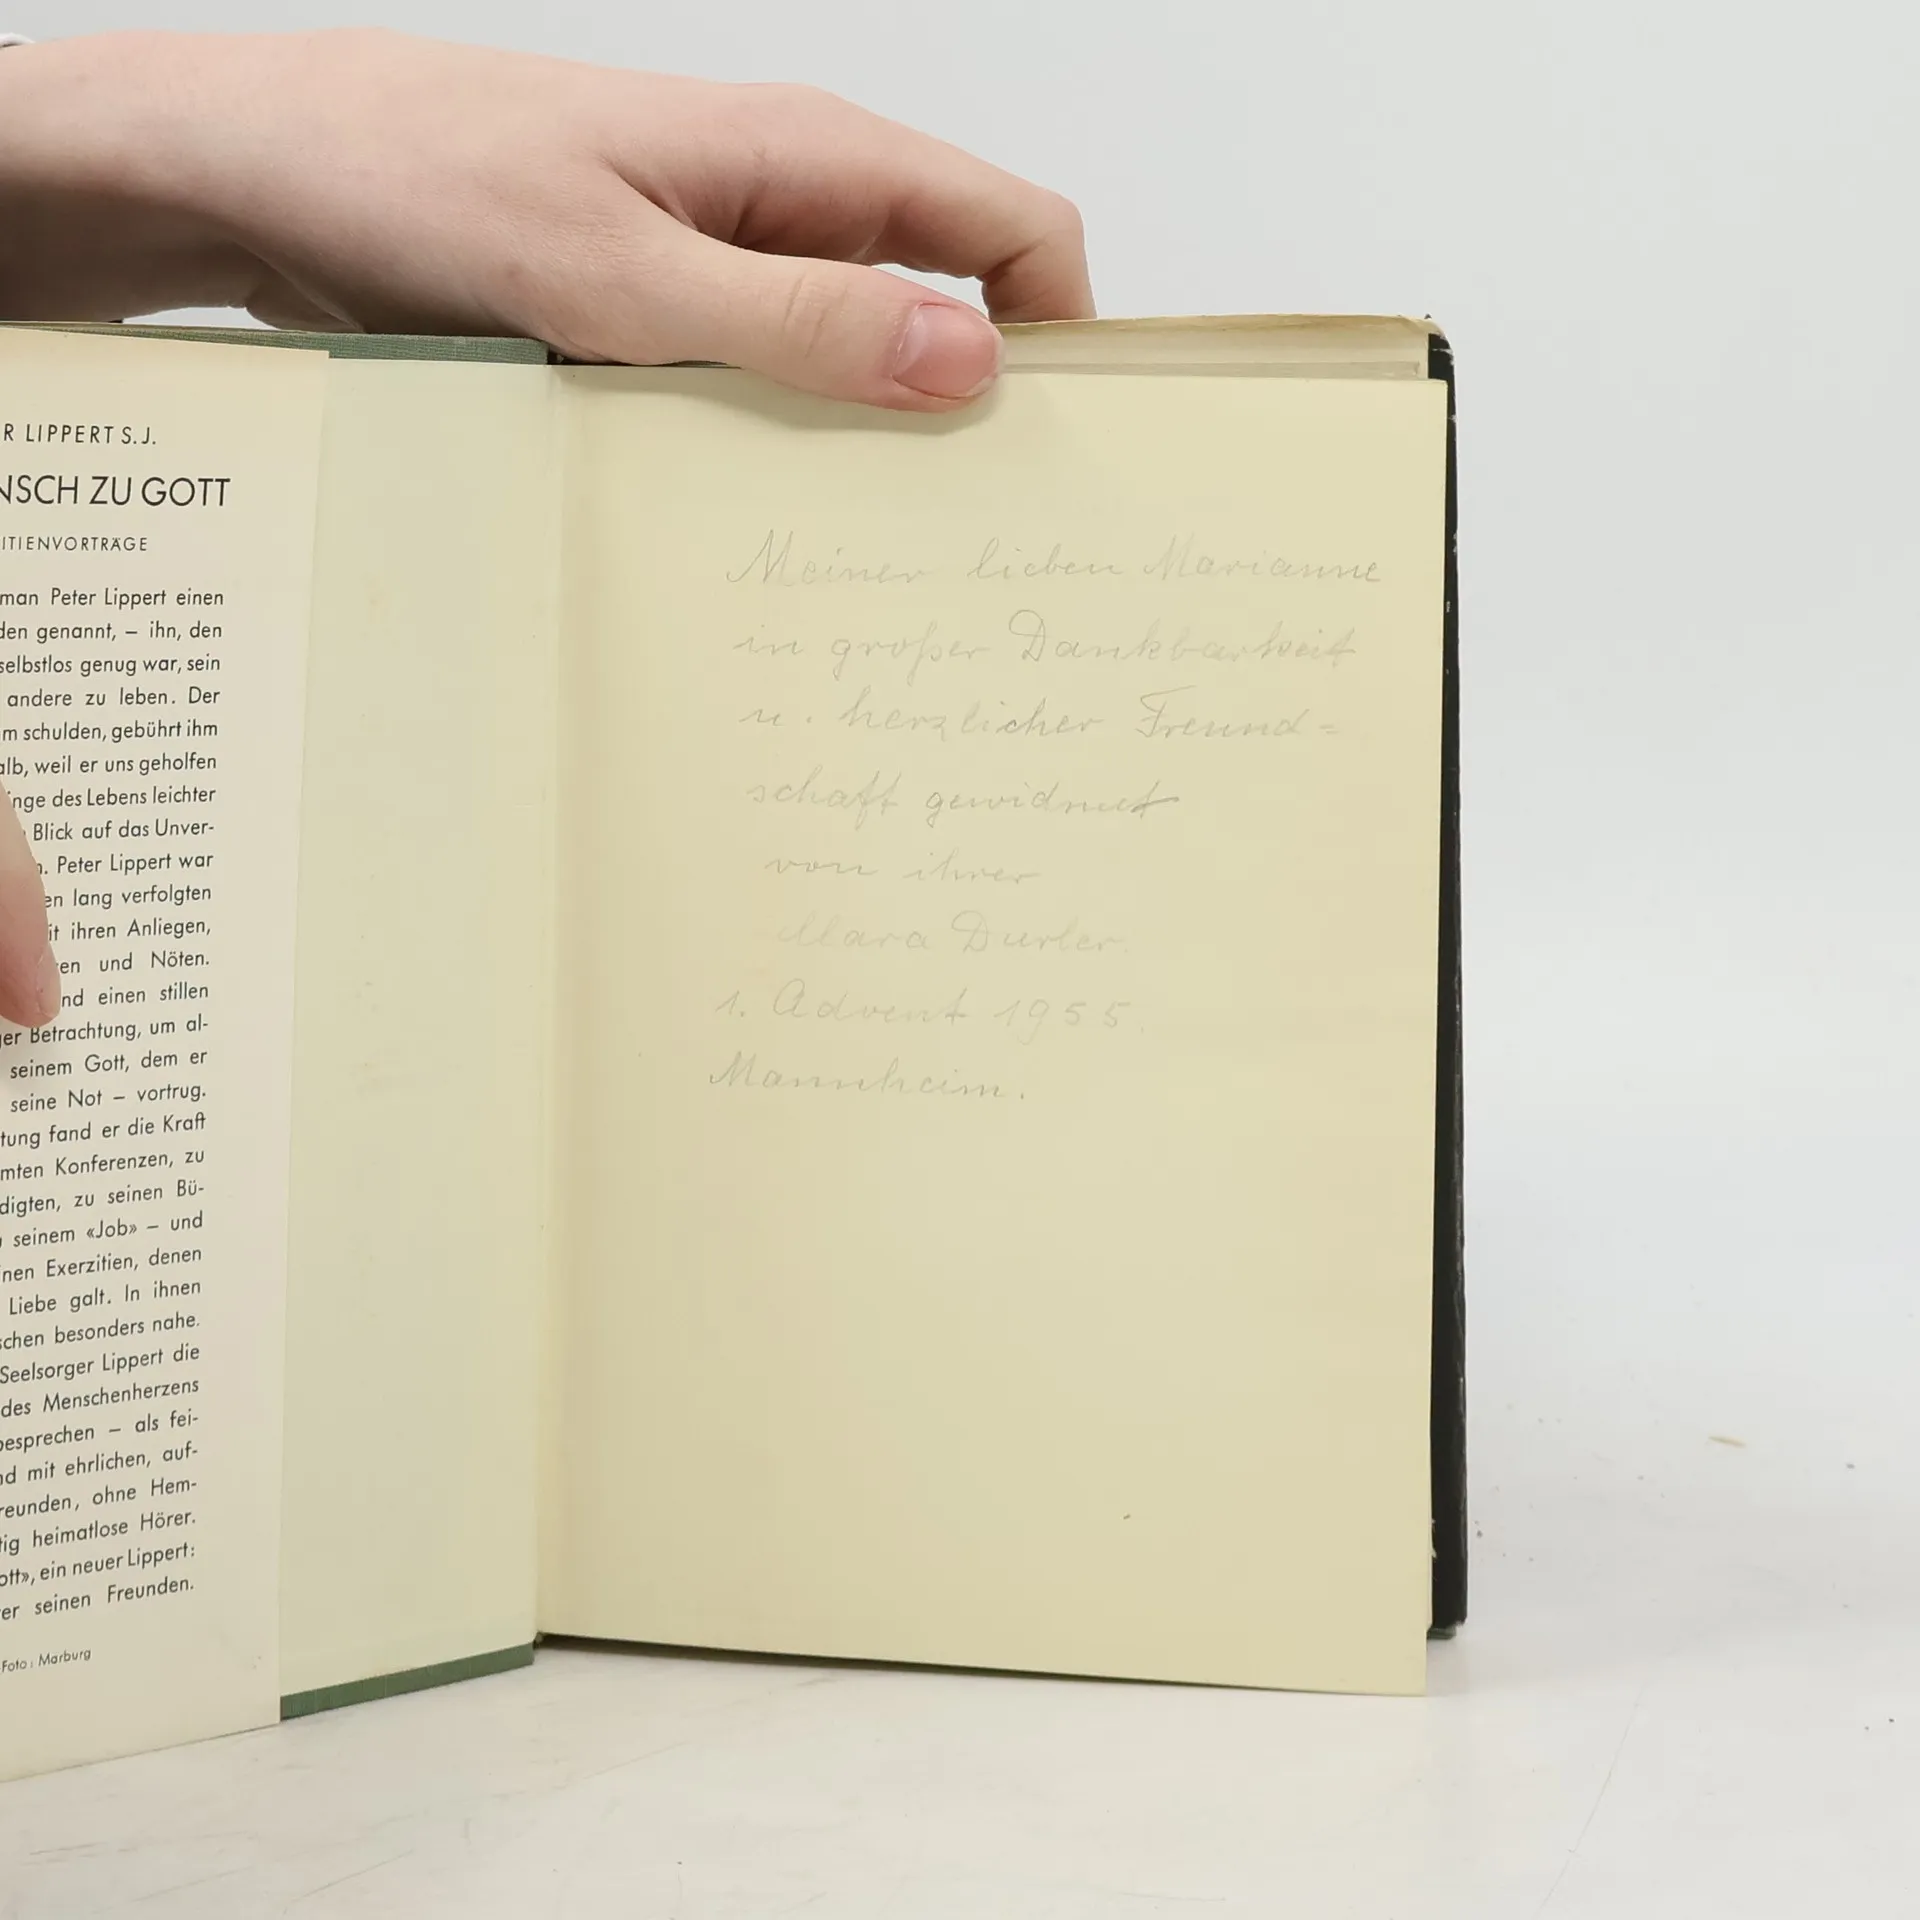 R LIPPERT S.J.
NSCH ZU GOTT
ITIENVORTRÄGE
man Peter Lippert einen
den genannt, – ihn, den
selbstlos genug war, sein
andere zu leben. Der
m schulden, gebührt ihm
alb, weil er uns geholfen
inge des Lebens leichter
Blick auf das Unver-
n. Peter Lippert war
en lang verfolgten
it ihren Anliegen,
ren und Nöten.
nd einen stillen
ger Betrachtung, um al-
seinem Gott, dem er
seine Not – vortrug.
tung fand er die Kraft
mten Konferenzen, zu
digten, zu seinen Bü-
seinem «Job» – und
inen Exerzitien, denen
Liebe galt. In ihnen
schen besonders nahe.
Seelsorger Lippert die
des Menschenherzens
besprechen – als fei-
nd mit ehrlichen, auf-
reunden, ohne Hem-
tig heimatlose Hörer.
ott», ein neuer Lippert:
er seinen Freunden.
Foto: Marburg
Meiner lieben Marianne
in großer Dankbarkeit
u. herzlicher Freund=
schaft gewidmet
von ihrer
Mara Durler.
1. Advent 1955.
Mannheim.